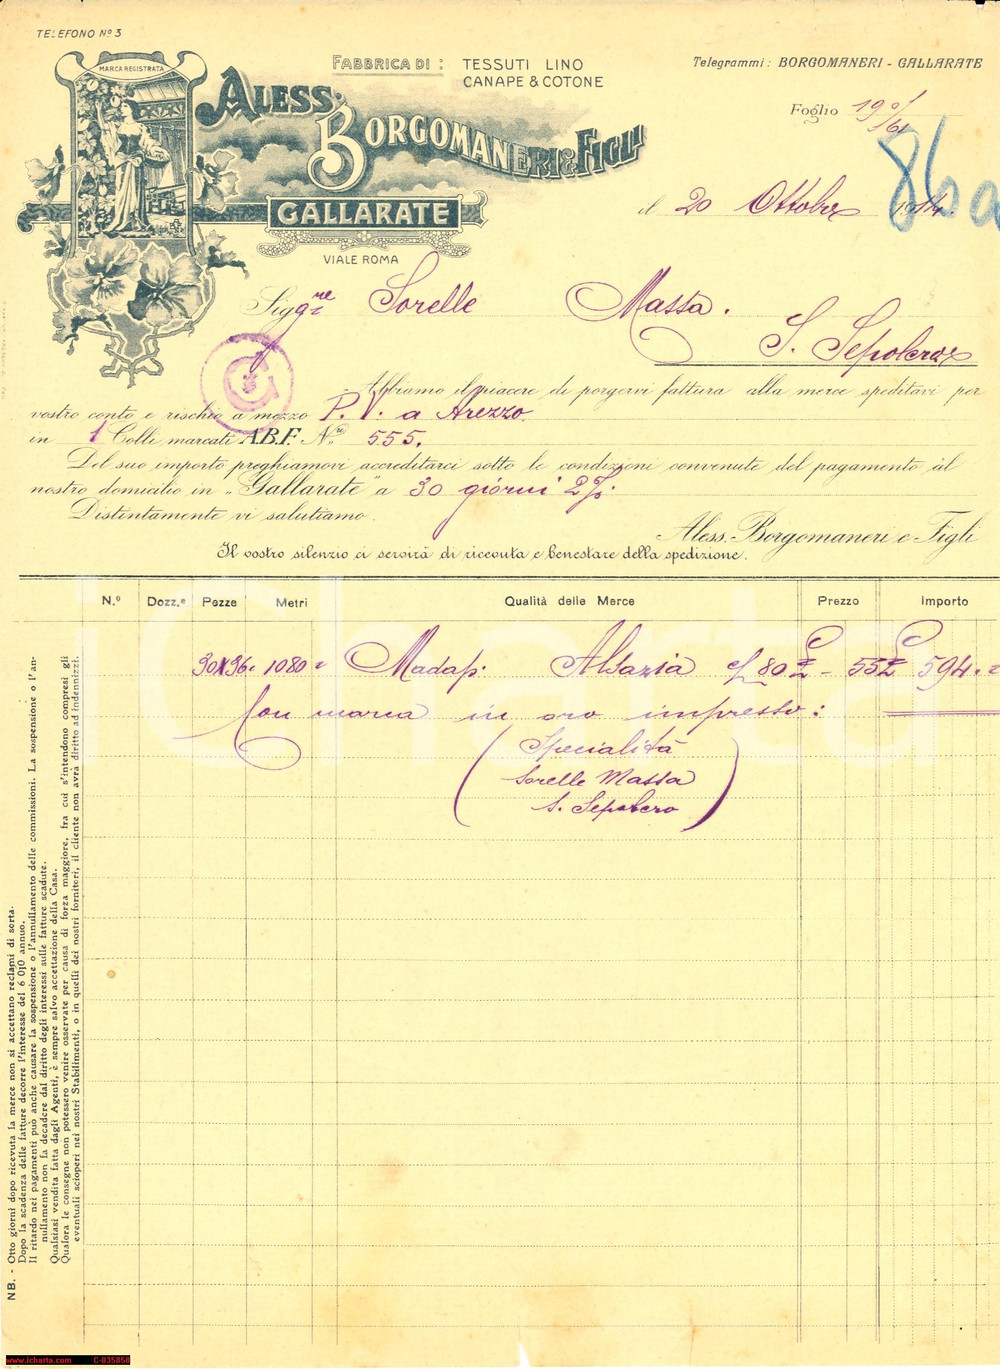 TELEFONO Nº 3
MARCA REGISTRATA
FABBRICA DI : TESSUTI LINO
CANAPE & COTONE
Telegrammi : BORGOMANERI - GALLARATE
ALESS. BORGOMANERI & FIGLI
GALLARATE
VIALE ROMA
Foglio 190/61
86
il 20 Ottobre 1914.
Sigg.re Sorelle Massa.
S. Sepolcro
Abbiamo il piacere di porgervi fattura alla merce speditavi per
vostro conto e rischio a mezzo P. V. a Arezzo.
in 1 Colli marcati A.B.F. Nre 555.
Del suo importo preghiamovi accreditarci sotto le condizioni convenute del pagamento al
nostro domicilio in „Gallarate" a 30 giorni 2%.
Distintamente vi salutiamo.
Aless. Borgomaneri e Figli
Il vostro silenzio ci servirà di ricevuta e benestare della spedizione.
N.º Dozz.e Pezze Metri Qualità delle Merce Prezzo Importo
30X36. 1080 Madap: Alsazia c/ 80 £ - 55 £ 594.
Con marca in oro impresso :
( Specialità
Sorelle Massa
S. Sepolcro )
NB. - Otto giorni dopo ricevuta la merce non si accettano reclami di sorta.
Dopo la scadenza delle fatture decorre l'interesse del 6 0|0 annuo.
Il ritardo nei pagamenti può anche causare la sospensione o l'annullamento delle commissioni. La sospensione o l'an-
nullamento non fa decadere dal diritto degli interessi sulle fatture scadute.
Qualsiasi vendita fatta dagli Agenti, è sempre salvo accettazione della Casa.
Qualora le consegne non potessero venire osservate per causa di forza maggiore, fra cui s'intendono compresi gli
eventuali scioperi nei nostri Stabilimenti, o in quelli dei nostri fornitori, il cliente non avrà diritto ad indennizzi.
iCharta
www.icharta.com C-035858